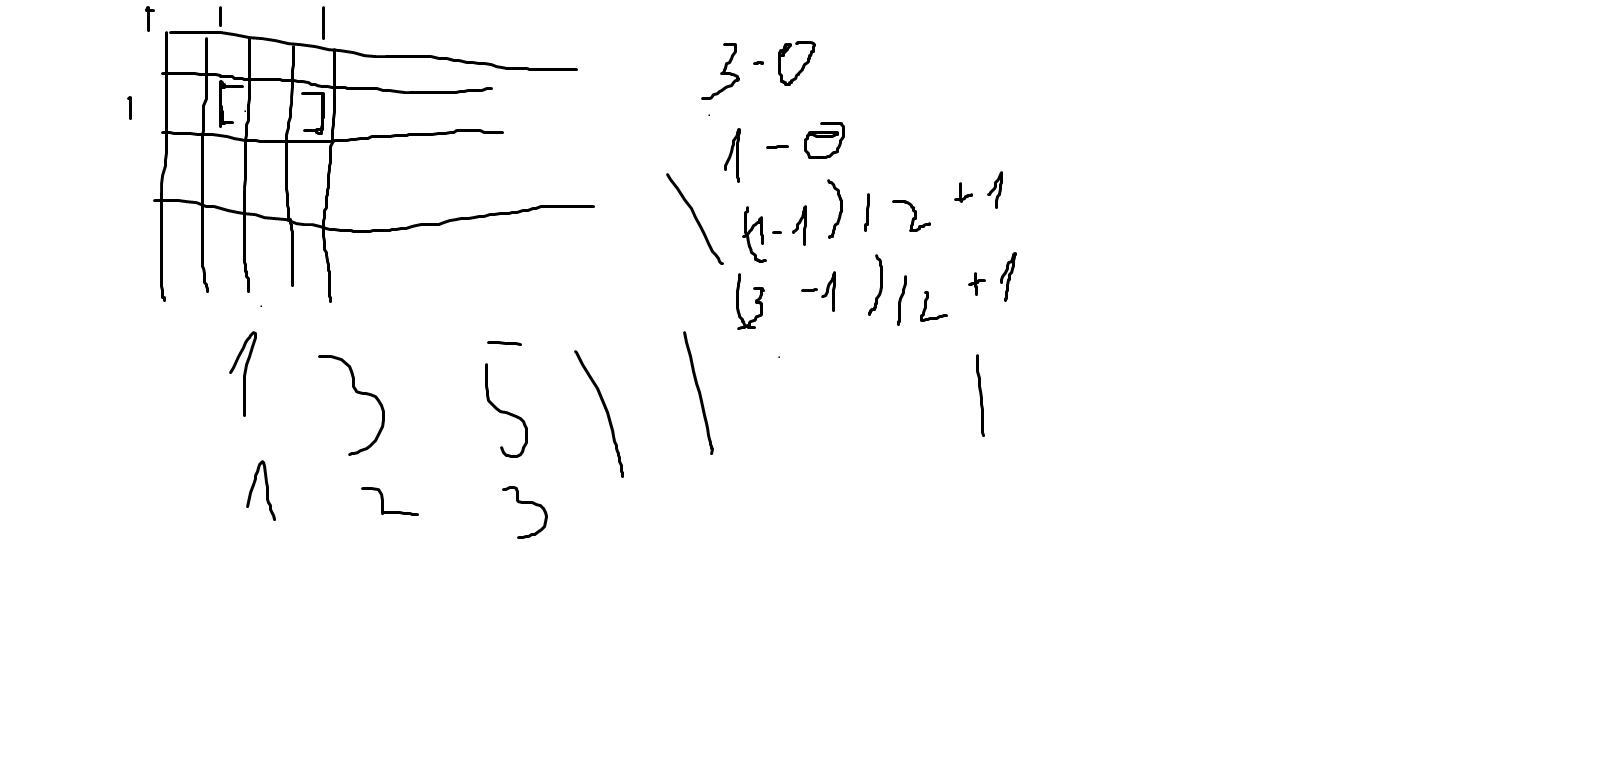 3-0
1-0
(1-1)/2+1
(3-1)/2+1
1 3 5
1 2 3